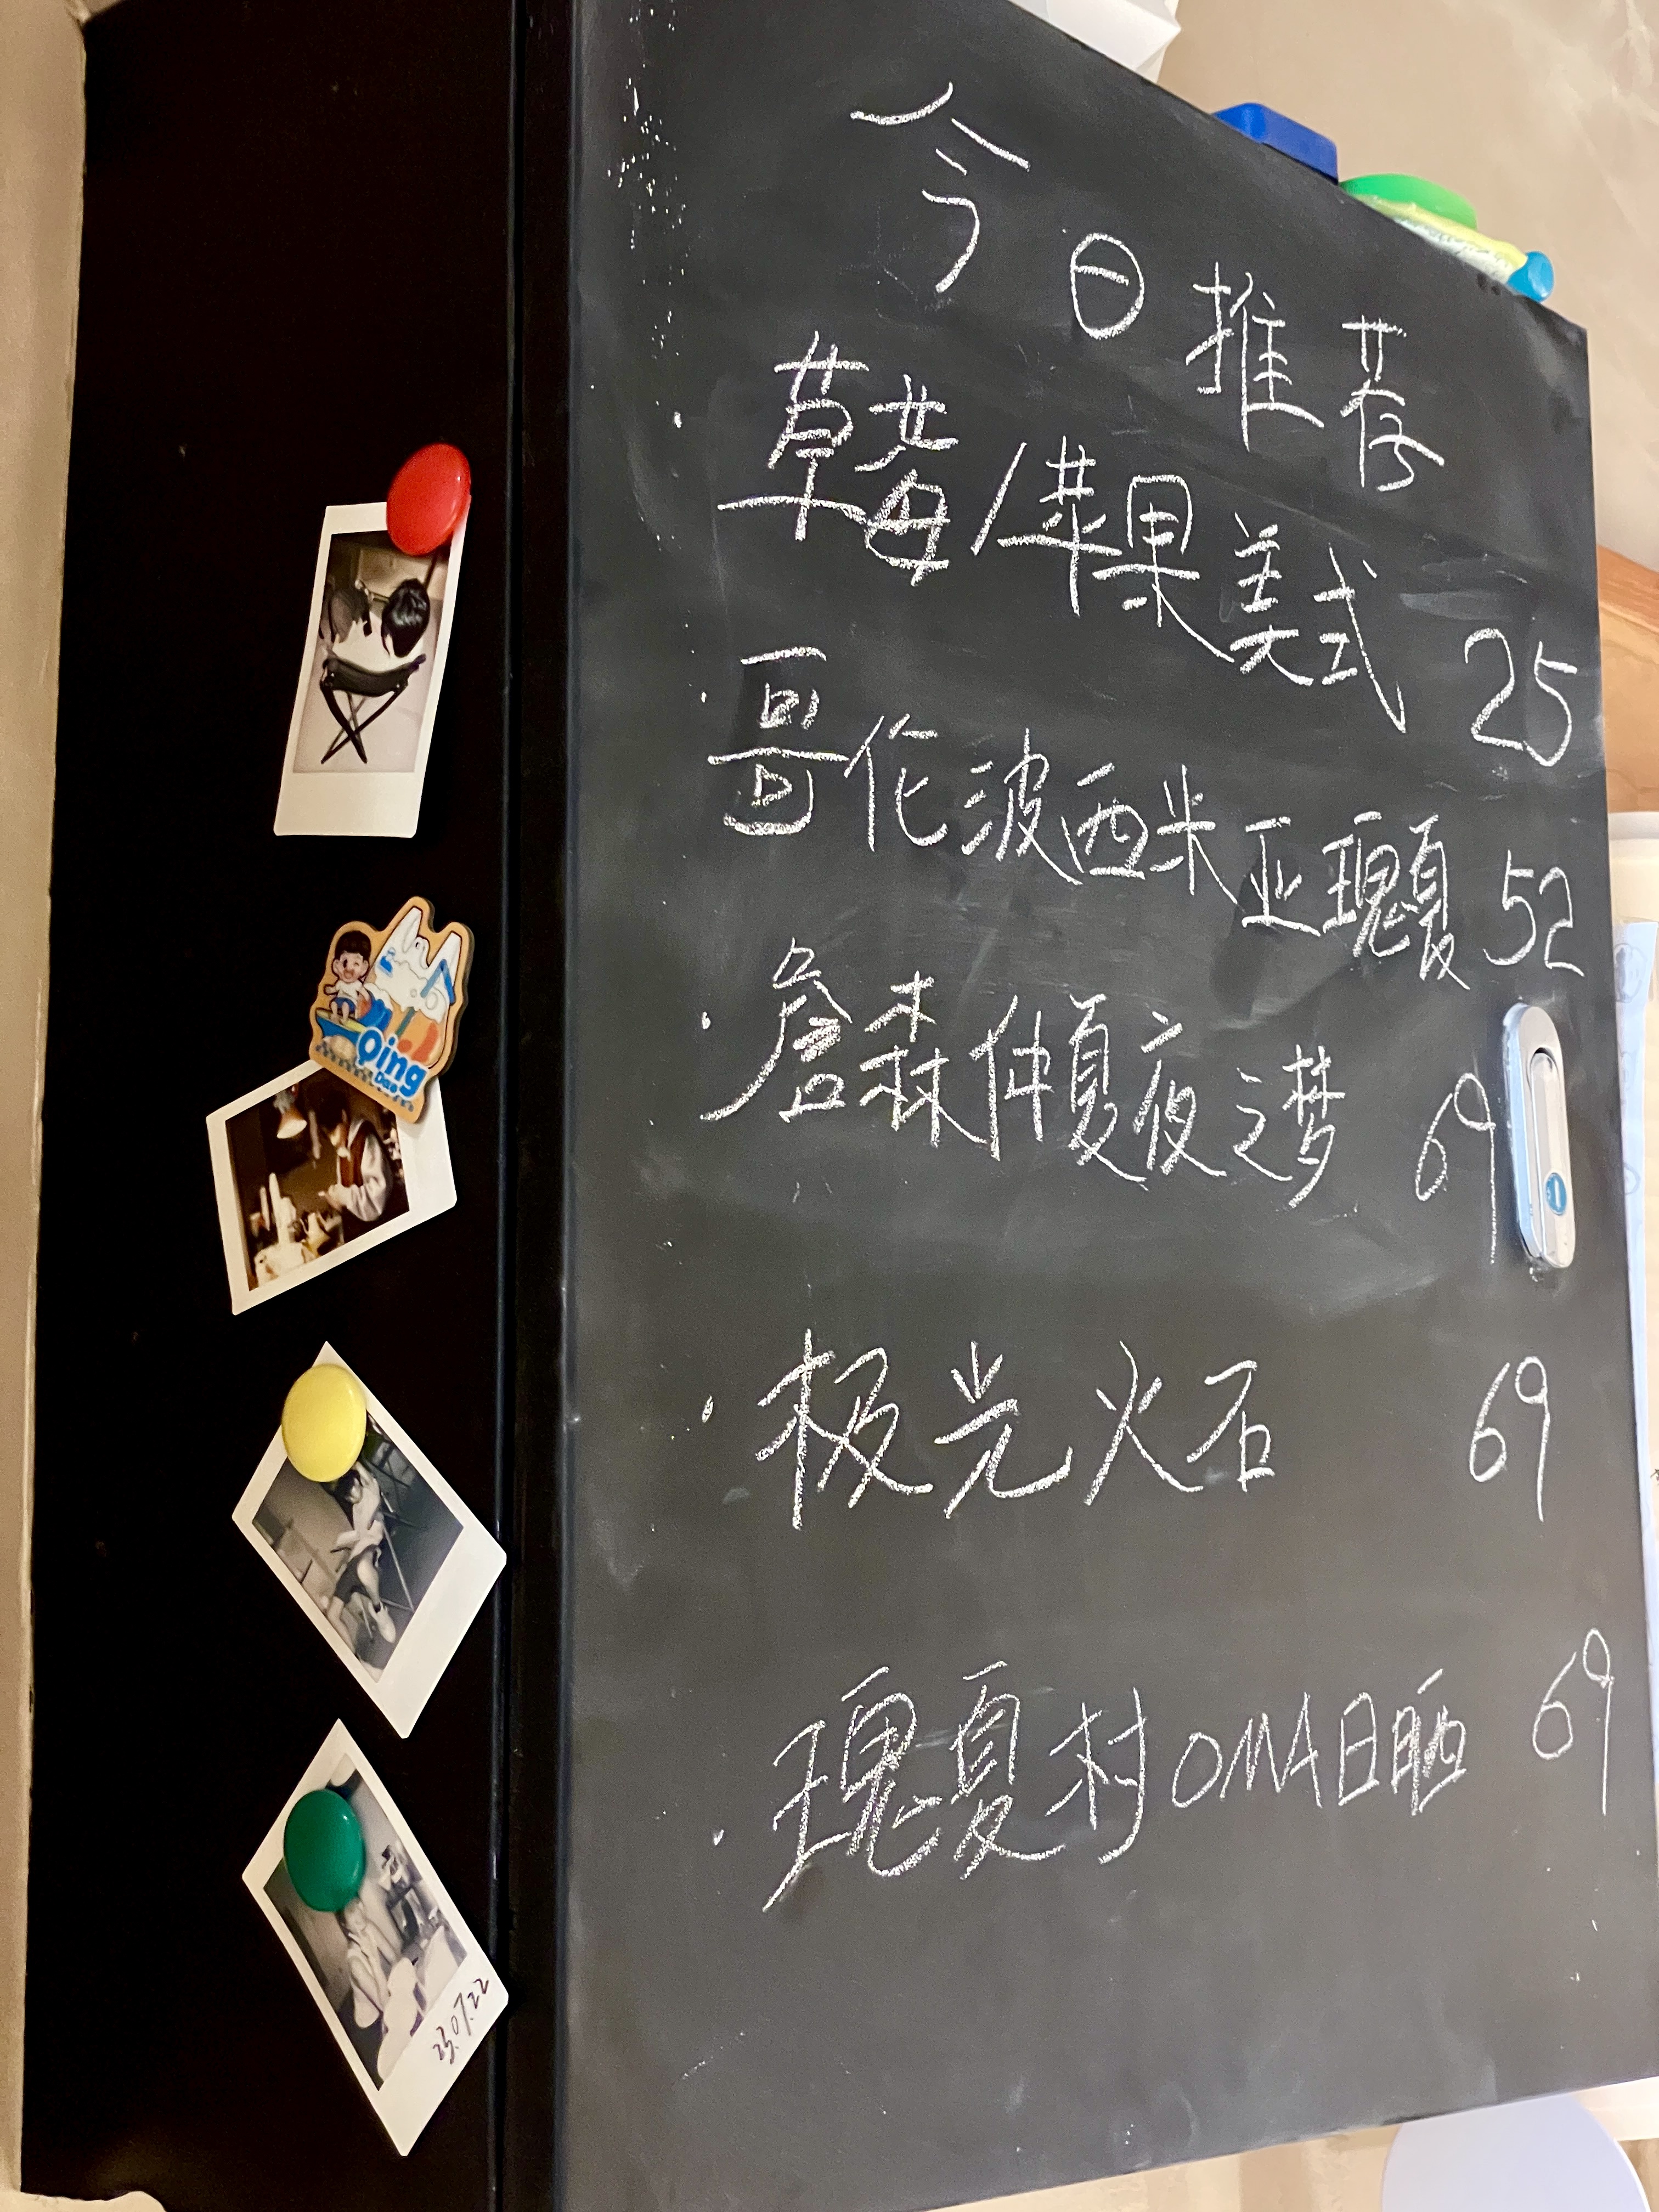 今日推荐
· 草莓/苹果美式 25
· 哥伦波西米亚瑰夏 52
· 詹森仲夏夜之梦 69
· 极光火石 69
· 瑰夏村OMA日晒 69
Qing
Dao